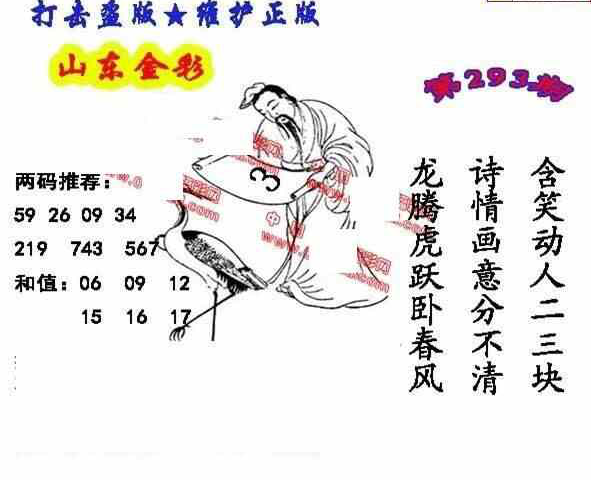 打击盗版★维护正版
山东金彩
第293期
两码推荐:
59 26 09 34
219 743 567
和值: 06 09 12
15 16 17
3
含笑动人二三块
诗情画意分不清
龙腾虎跃卧春风